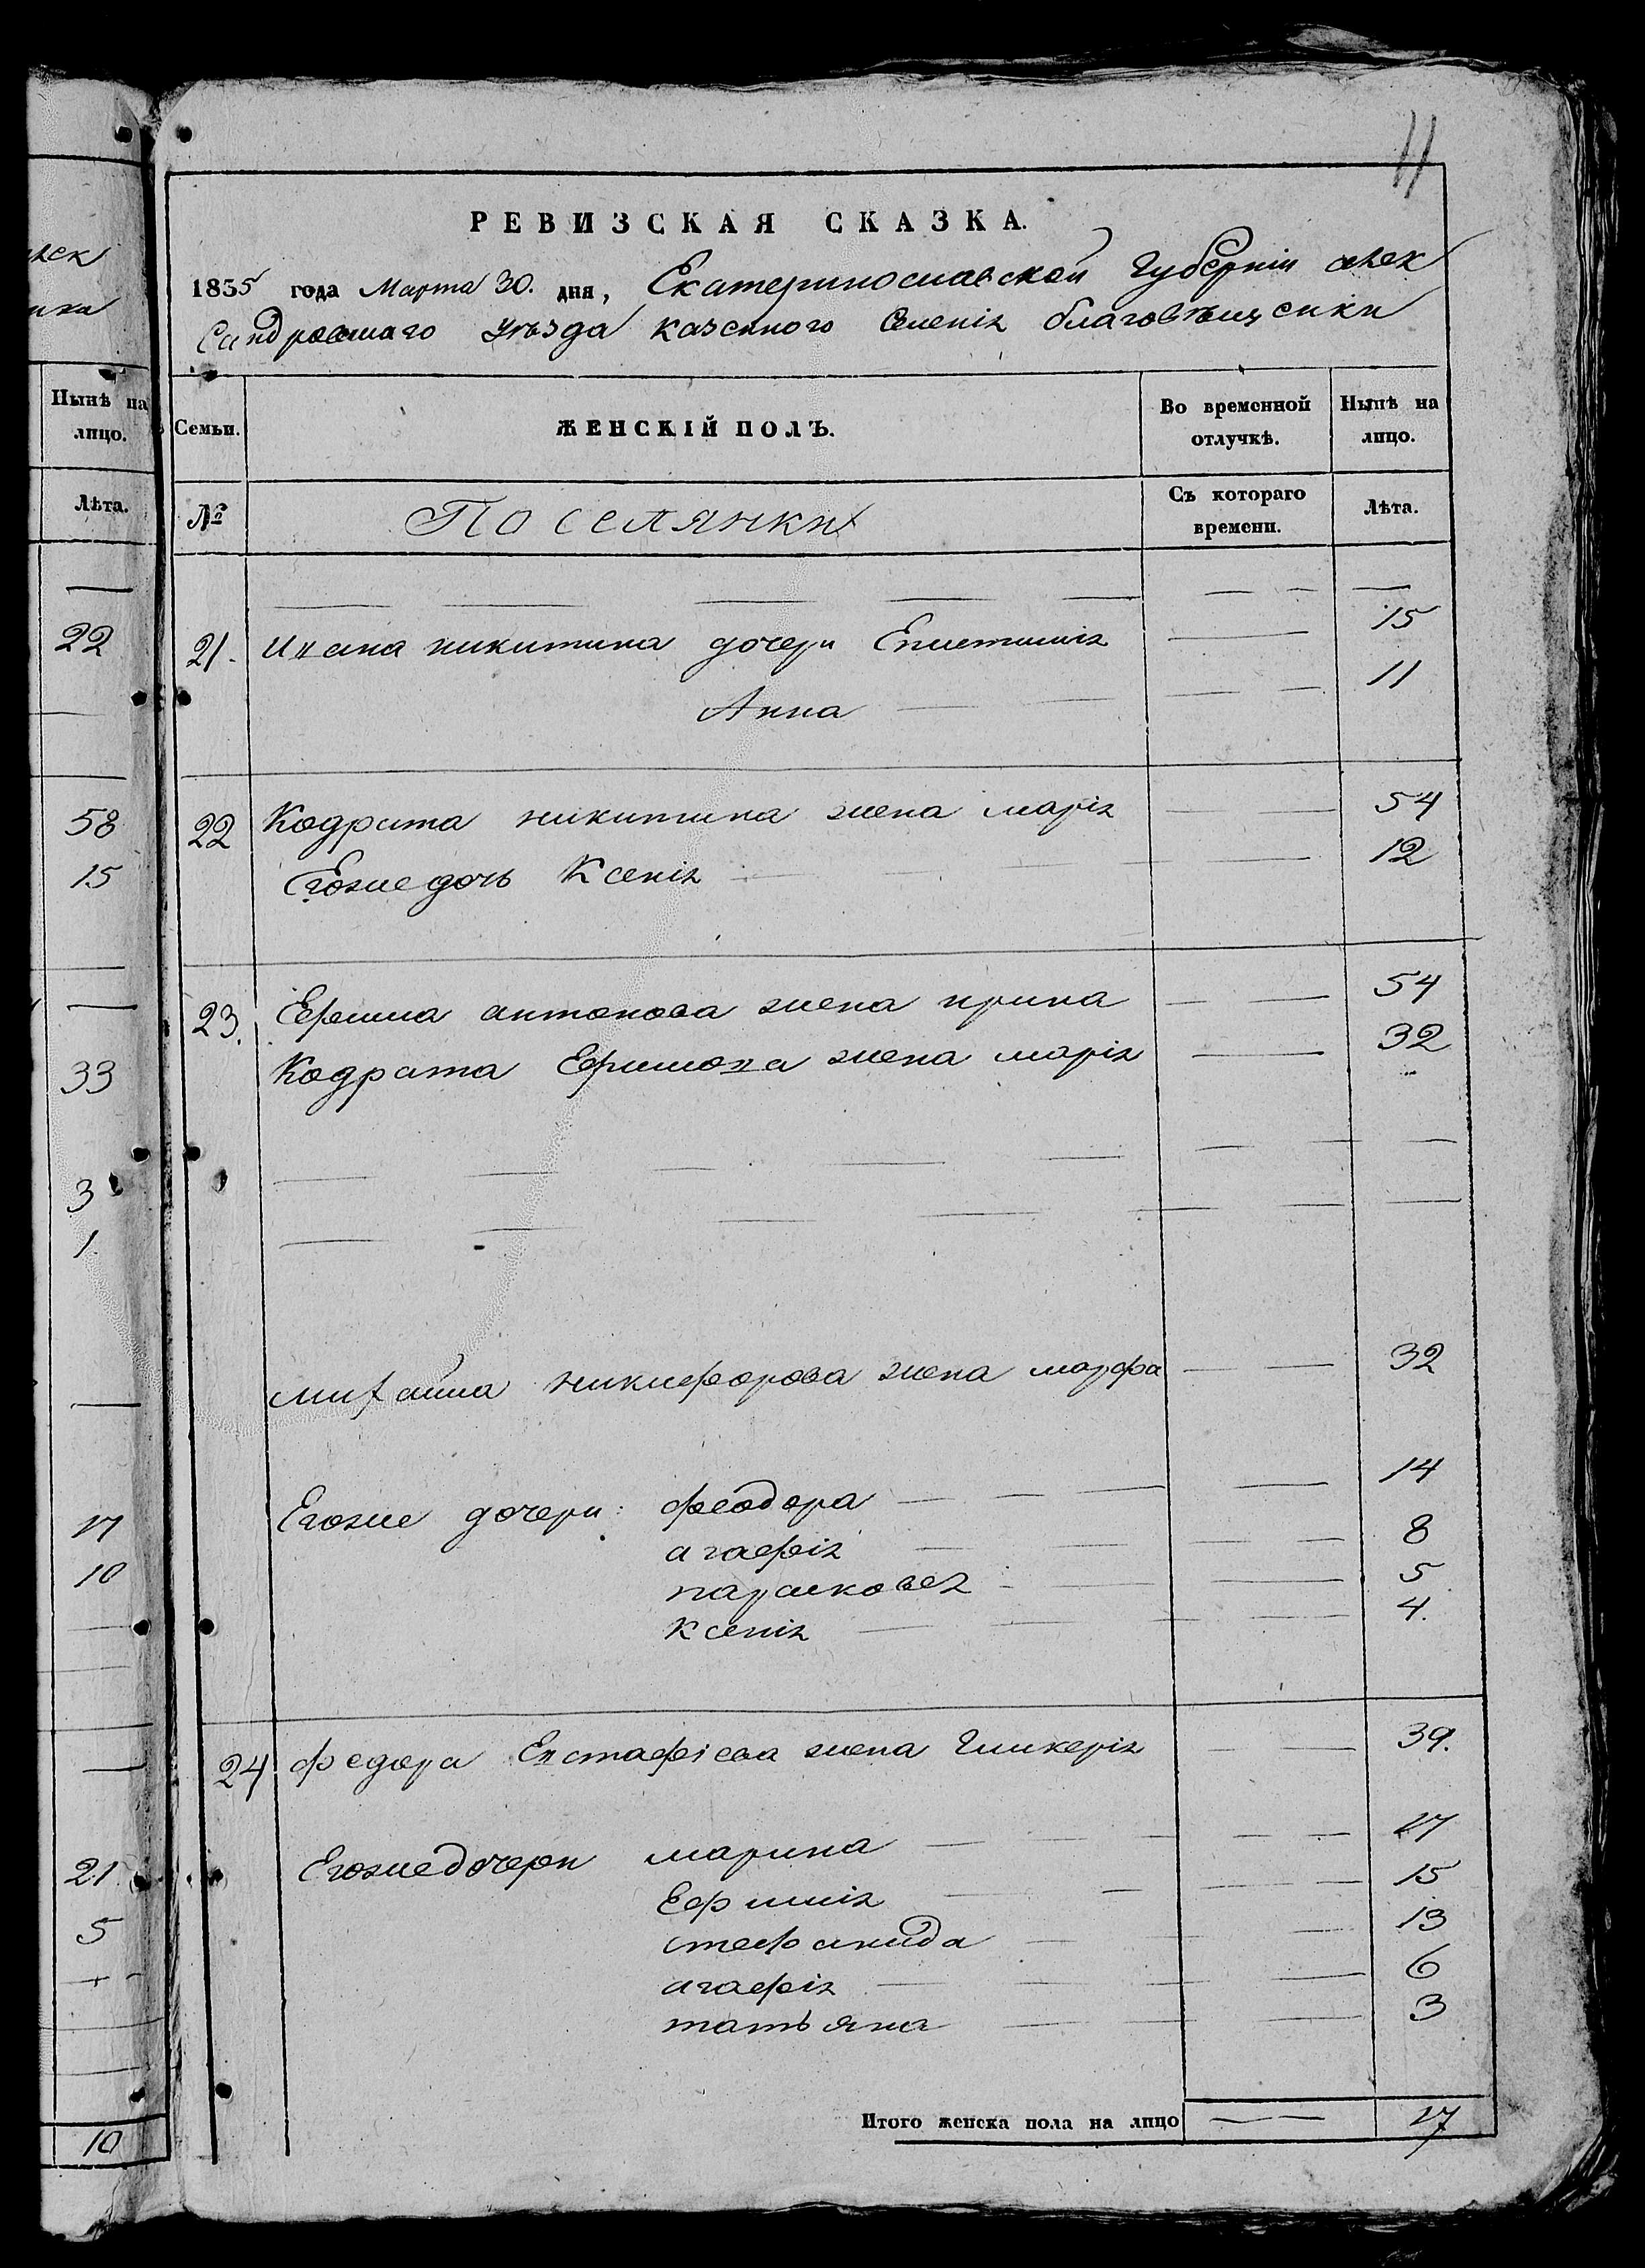 11
РЕВИЗСКАЯ СКАЗКА.
1835 года Марта 30. дня, Екатеринославской Губерніи алек
сандровскаго уѣзда казенного Селенія благовѣщенки
Нынѣ на лицо.
Семьи. ЖЕНСКІЙ ПОЛЪ. Во временной отлучкѣ. Нынѣ на лицо.
Лѣта.
№ Поселянки Съ котораго времени. Лѣта.
22
21. Ивана никитина дочери Епистимія 15
Анна 11
58
15
22 Кодрата никитина жена марія 54
Егоже дочь Ксенія 12
23. Ефима антонова жена ирина 54
33
Кодрата Ефимова жена марія 32
3
1
михайла никифорова жена марфа 32
17
10
Егоже дочери: феодора 14
агафія 8
парасковея 5
Ксенія 4.
24 федора Евстафіева жена Гликерія 39.
21
5
Егоже дочери марина 17
Ефимія 15
стефанида 13
агафія 6
татьяна 3
10
Итого женска пола на лицо 17